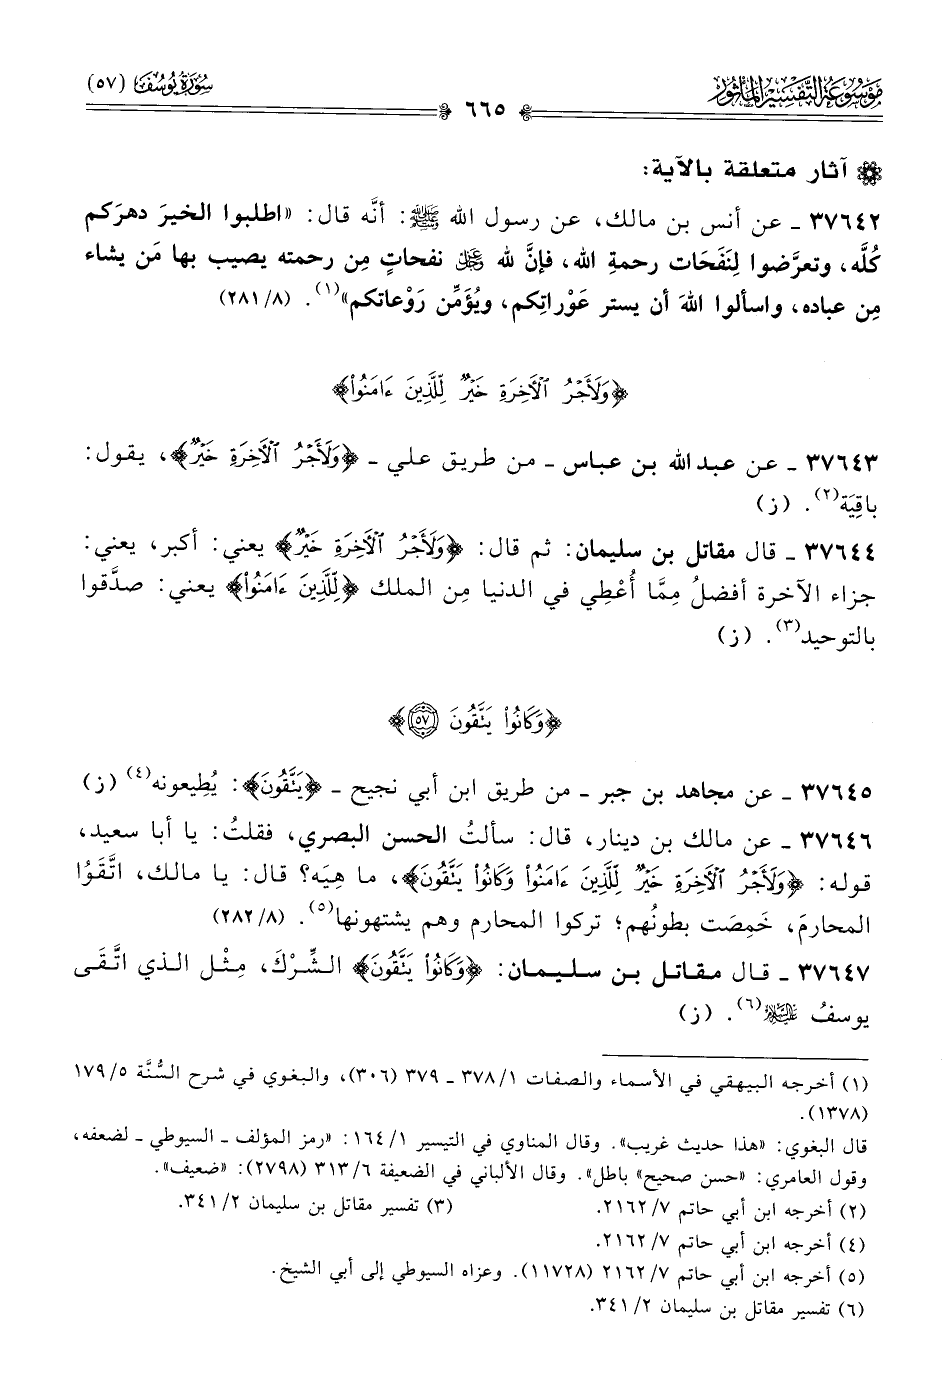 موسوعة التفسير المأثور
سورة يوسف (٥٧)
٦٦٥
آثار متعلقة بالآية:
٣٧٦٤٢ ـ عن أنس بن مالك، عن رسول الله ﷺ: أنَّه قال: «اطلبوا الخيرَ دهرَكم
كُلَّه، وتعرَّضوا لِنَفَحَات رحمةِ الله، فإنَّ لله ﷿ نفحاتٍ مِن رحمته يصيب بها مَن يشاء
مِن عباده، واسألوا اللهَ أن يستر عَوْراتِكم، ويُؤَمِّن رَوْعاتكم»(١). (٢٨١/٨)
﴿وَلَأَجْرُ ٱلْأَخِرَةِ خَيْرٌ لِّلَّذِينَ ءَامَنُوا۟﴾
٣٧٦٤٣ ـ عن عبد الله بن عباس ـ من طريق علي ـ ﴿وَلَأَجْرُ ٱلْأَخِرَةِ خَيْرٌ﴾، يقول:
باقِيَة(٢). (ز)
٣٧٦٤٤ ـ قال مقاتل بن سليمان: ثم قال: ﴿وَلَأَجْرُ ٱلْأَخِرَةِ خَيْرٌ﴾ يعني: أكبر، يعني:
جزاء الآخرة أفضلُ مِمَّا أُعْطِي في الدنيا مِن الملك ﴿لِّلَّذِينَ ءَامَنُوا۟﴾ يعني: صدَّقوا
بالتوحيد(٣). (ز)
﴿وَكَانُوا۟ يَتَّقُونَ ٥٧﴾
٣٧٦٤٥ ـ عن مجاهد بن جبر ـ من طريق ابن أبي نجيح ـ ﴿يَتَّقُونَ﴾: يُطِيعونه(٤) (ز)
٣٧٦٤٦ ـ عن مالك بن دينار، قال: سألتُ الحسن البصري، فقلتُ: يا أبا سعيد،
قوله: ﴿وَلَأَجْرُ ٱلْأَخِرَةِ خَيْرٌ لِّلَّذِينَ ءَامَنُوا۟ وَكَانُوا۟ يَتَّقُونَ﴾، ما هِيَه؟ قال: يا مالك، اتَّقَوُا
المحارمَ، خَمِصَت بطونُهم؛ تركوا المحارم وهم يشتهونها(٥). (٢٨٢/٨)
٣٧٦٤٧ ـ قال مقاتل بن سليمان: ﴿وَكَانُوا۟ يَتَّقُونَ﴾ الشِّرْكَ، مِثْل الذي اتَّقَى
يوسفُ عليه السلام(٦). (ز)
(١) أخرجه البيهقي في الأسماء والصفات ٣٧٨/١ ـ ٣٧٩ (٣٠٦)، والبغوي في شرح السُّنَّة ١٧٩/٥
(١٣٧٨).
قال البغوي: «هذا حديث غريب». وقال المناوي في التيسير ١٦٤/١: «رمز المؤلف ـ السيوطي ـ لضعفه،
وقول العامري: «حسن صحيح» باطل». وقال الألباني في الضعيفة ٣١٣/٦ (٢٧٩٨): «ضعيف».
(٢) أخرجه ابن أبي حاتم ٢١٦٢/٧. (٣) تفسير مقاتل بن سليمان ٣٤١/٢.
(٤) أخرجه ابن أبي حاتم ٢١٦٢/٧.
(٥) أخرجه ابن أبي حاتم ٢١٦٢/٧ (١١٧٢٨). وعزاه السيوطي إلى أبي الشيخ.
(٦) تفسير مقاتل بن سليمان ٣٤١/٢.